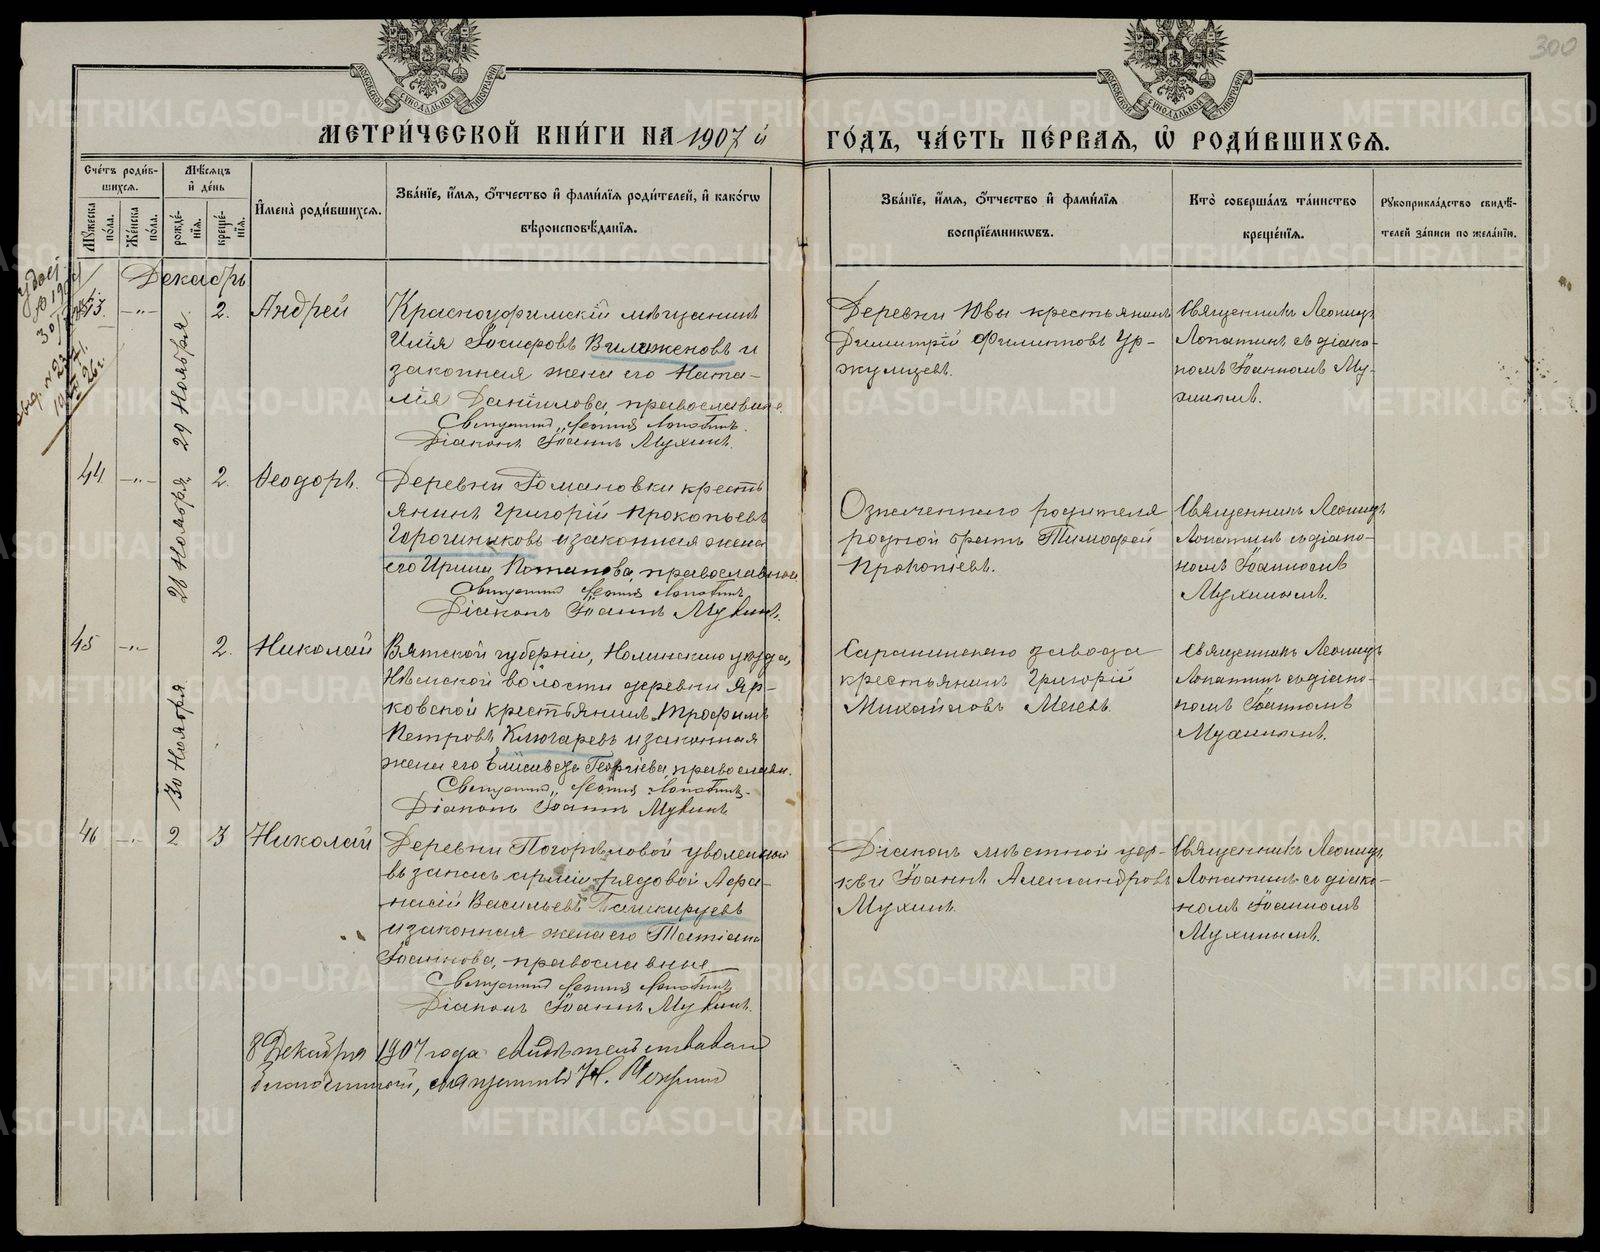 300
МОСКОВСКОЙ СѴНОДАЛЬНОЙ ТИПОГРАФІИ
МОСКОВСКОЙ СѴНОДАЛЬНОЙ ТИПОГРАФІИ
МЕТРИ́ЧЕСКОЙ КНИ́ГИ НА 1907 й ГО́ДЪ, ЧА́СТЬ ПЕ́РВАЯ, Ѽ РОДИ́ВШИХСЯ.
Сче́тъ роди́в-
шихся.
Мѣ́сяцъ
и҆ де́нь
Му́жеска по́ла.
Же́нска по́ла.
рожде́-
нїя.
креще́-
нїя.
И҆мена̀ роди́вшихся.
Зва́нїе, и҆́мя, ѻ҆́тчество и҆ фами́лїя роди́телей, и҆ како́гѡ
вѣроисповѣ́данїя.
Зва́нїе, и҆́мя, ѻ҆́тчество и҆ фами́лїя
воспрїе́мникѡвъ.
Кто̀ соверша́лъ та́инство
креще́нїя.
Рукоприкла́дство свидѣ́-
телей за́писи по жела́нїю.
Декабрь
43. -"- 29 Ноября. 2. Андрей
Красноуфимскій мѣщанинъ
Илія Іосифовъ Виложеновъ и
законная жена его Ната-
лія Даніилова, православные.
Священникъ Леонидъ Лопатинъ.
Діаконъ Іоаннъ Мухинъ.
Деревни Ювы крестьянинъ
Димитрій Филиповъ Ур-
жумцевъ.
Священникъ Леонидъ
Лопатинъ съ діако-
номъ Іоанномъ Му-
хинымъ.
44 -"- 26 Ноября 2. Ѳеодоръ.
Деревни Романовки кресть
янинъ Григорій Прокопьевъ
и законная жена
его Ирина Потапова, православные
Священникъ Леонидъ Лопатинъ
Діаконъ Іоаннъ Мухинъ.
Означеннаго родителя
родной братъ Тимофей
Прокопіевъ.
Священникъ Леонидъ
Лопатинъ съ діако-
номъ Іоанномъ
Мухинымъ.
45 -"- 30 Ноября 2. Николай
Вятской губерніи, Нолинскаго уѣзда,
волости деревни Яр-
ковской крестьянинъ Трофимъ
Петровъ Ключаревъ и законная
жена его Елисавета Георгіева, православн.
Священникъ Леонидъ Лопатинъ.
Діаконъ Іоаннъ Мухинъ
Саранинскаго завода
крестьянинъ Григорій
Михайловъ
Священникъ Леонидъ
Лопатинъ съ діако-
номъ Іоанномъ
Мухинымъ.
46 -"- 2 3 Николай
Деревни Погорѣловой уволенный
въ запасъ арміи рядовой Аѳа-
насій Васильевъ Башкирцевъ
и законная жена его Татіана
Іоаннова, православные
Священникъ Леонидъ Лопатинъ
Діаконъ Іоаннъ Мухинъ.
Діаконъ мѣстной цер-
кви Іоаннъ Александровъ
Мухинъ.
Священникъ Леонидъ
Лопатинъ съ діако-
номъ Іоанномъ
Мухинымъ.
8 Декабря 1907 года свидѣтельствовалъ
благочинный, священникъ
METRIKI.GASO-URAL.RU